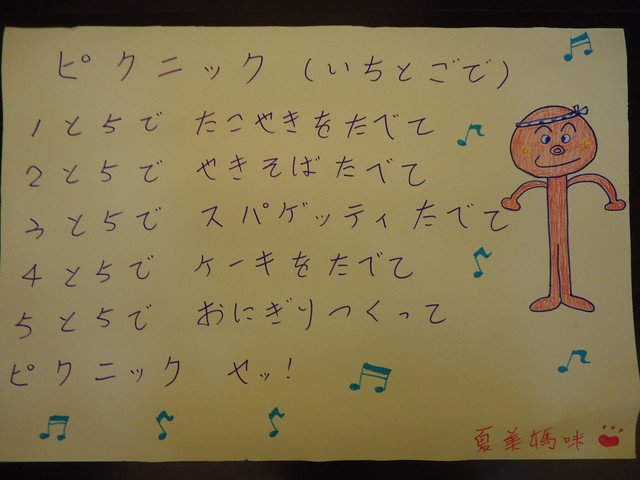 ピクニック (いちとごで)
1と5で たこやきをたべて
2と5で やきそばたべて
3と5で スパゲッティたべて
4と5で ケーキをたべて
5と5で おにぎりつくって
ピクニック ヤッ!
夏美媽咪